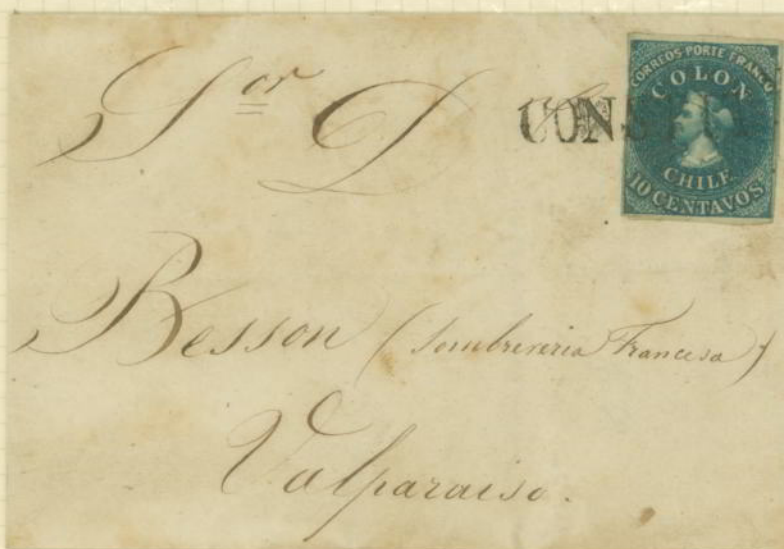 Sor D
CORREOS PORTE FRANCO
COLON
CHILE
10 CENTAVOS
Besson (Sombrereria Francesa)
Valparaiso.